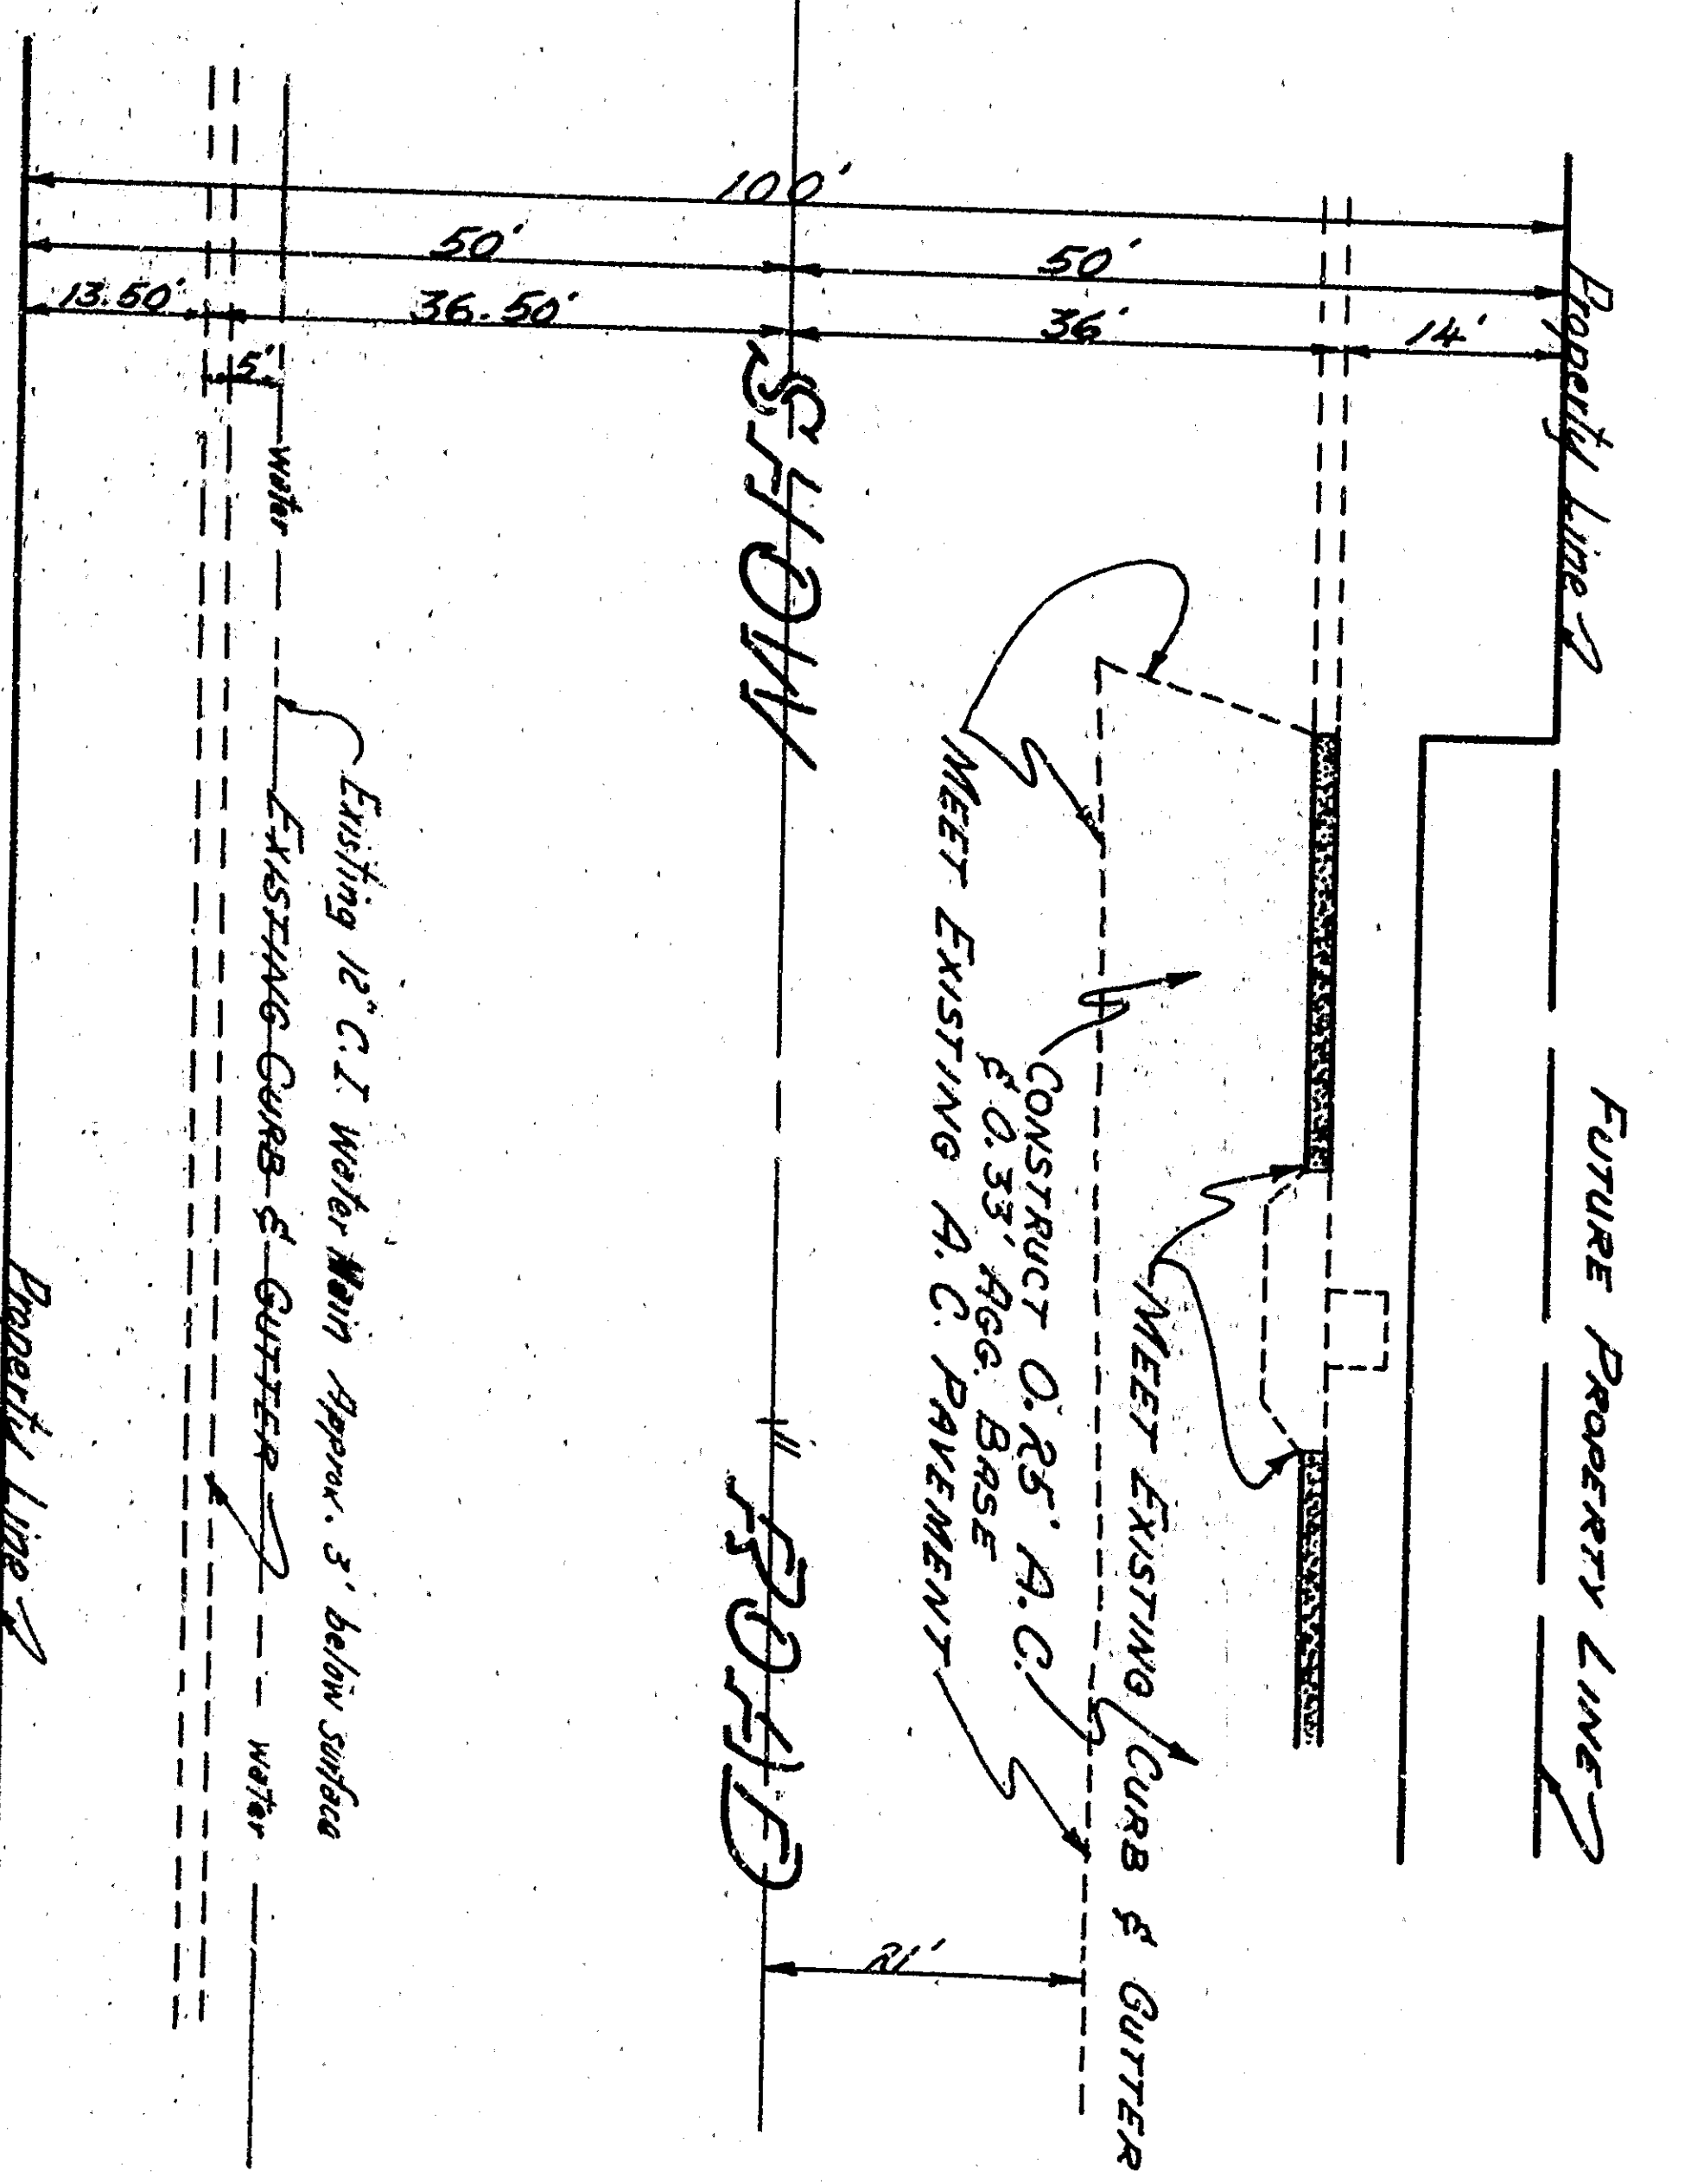 FUTURE PROPERTY LINE
Property Line
100'
50'
50'
13.50'
36.50'
36'
14'
5'
MEET EXISTING CURB & GUTTER
CONSTRUCT 0.25' A.C.
& 0.33' AGG. BASE
MEET EXISTING A.C. PAVEMENT
21'
SHOW ROAD
Existing 12" C.I. Water Main Approx. 3' below surface
water
EXISTING CURB & GUTTER
water
Property Line